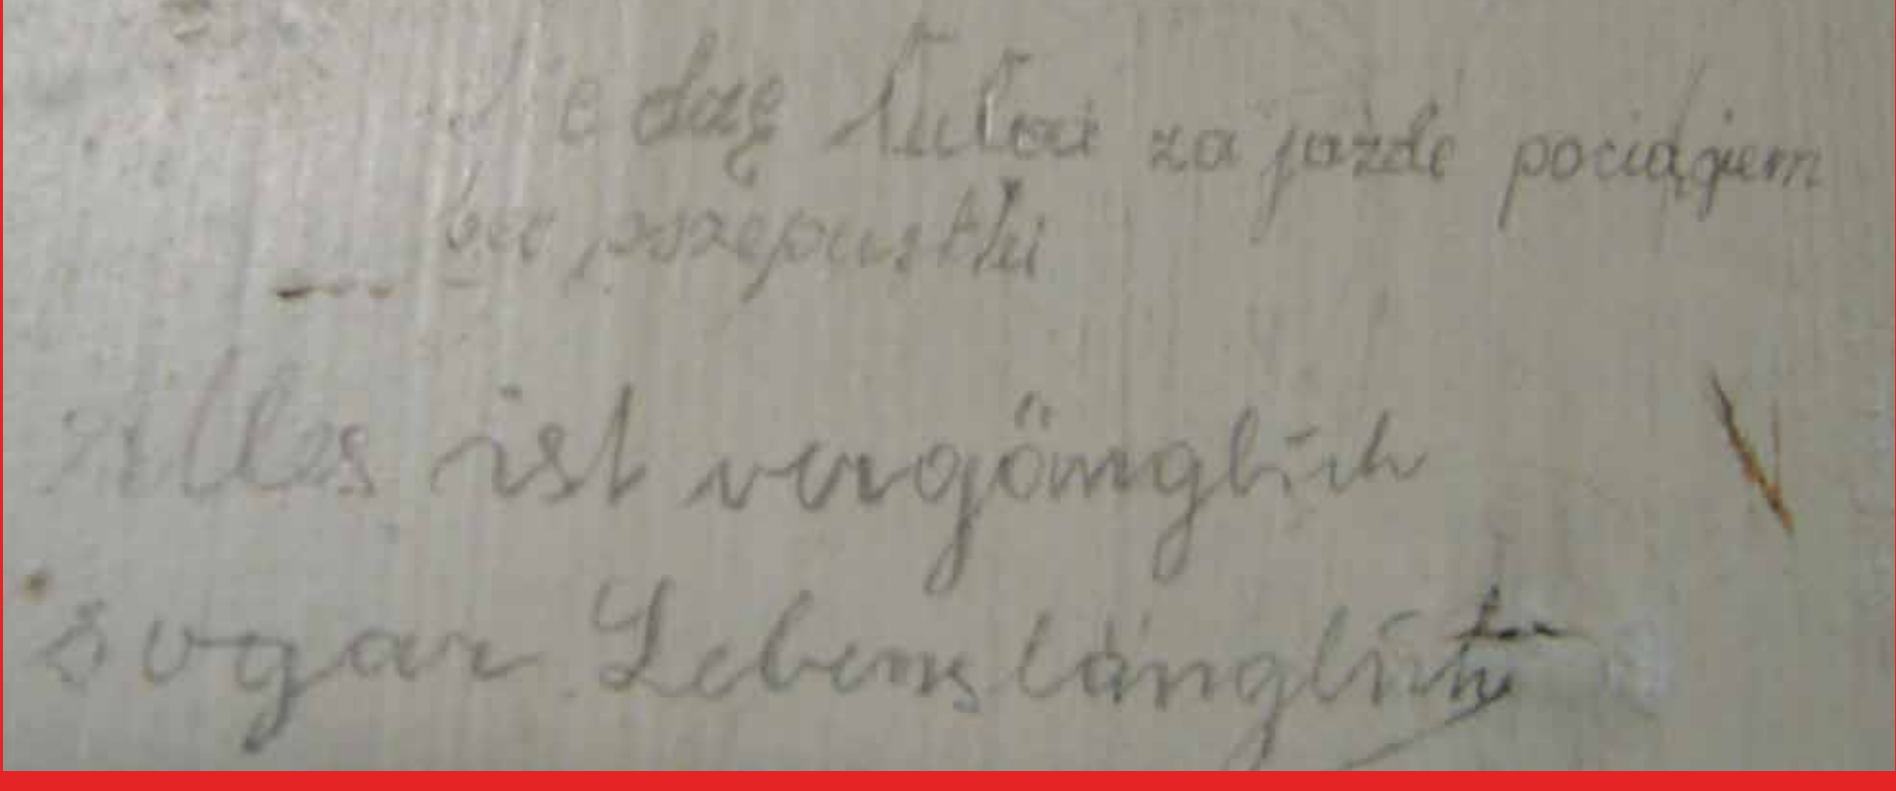 za jazdę pociągiem
bez przepustki
Alles ist vergänglich
sogar Lebenslänglich